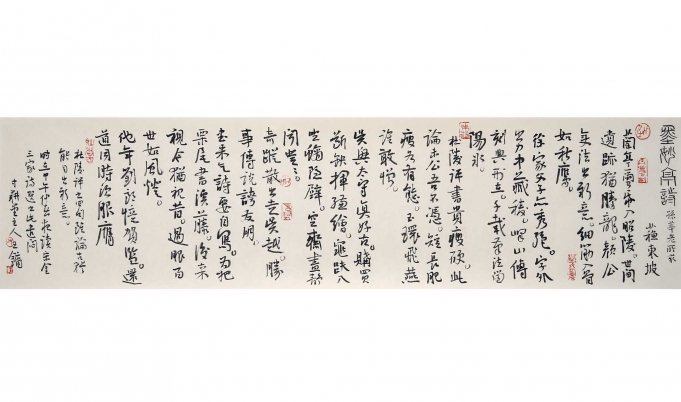 墨妙亭詩 孫莘老所求
蘇東坡
蘭亭繭紙入昭陵。世間
遺跡猶騰龍。顏公
變法出新意。細筋入骨
如秋鷹。
徐家父子亦秀絕。字外
出力中藏稜。嶧山傳
刻典刑在。千載筆法留
陽冰。
杜陵評書貴瘦硬。此
論未公吾不憑。短長肥
瘦各有態。玉環飛燕
誰敢憎。
吳興太守真好古。購買
斷缺揮縑繒。龜趺入
坐螭隱壁。空齋晝静
聞登登。
奇蹤散出走吳越。勝
事傳說誇友朋。
書來乞詩要自寫。为把
栗尾書溪藤。後來
視今猶視昔。過眼百
世如風燈。
他年劉郎憶賀監。還
道同時須服膺。
杜陵評書四句
能自出新意。